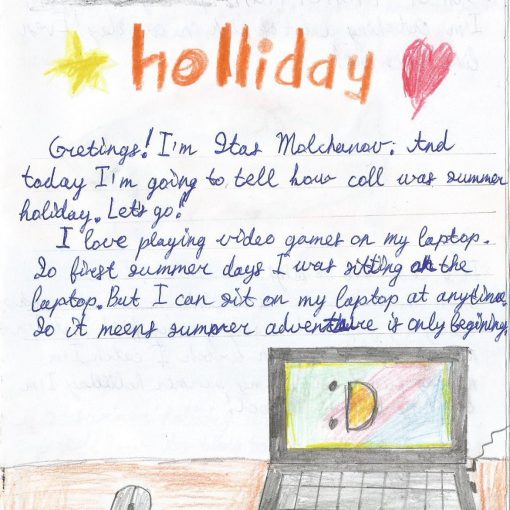 holliday
Gretings! I'm Itas Molchanov. And
today I'm going to tell how coll was summer
holiday. Let's go!
I love playing video games on my laptop.
So first summer days I was sitting on the
laptop. But I can sit on my laptop at anytime.
So it meens summer adventure is only begining.
:D